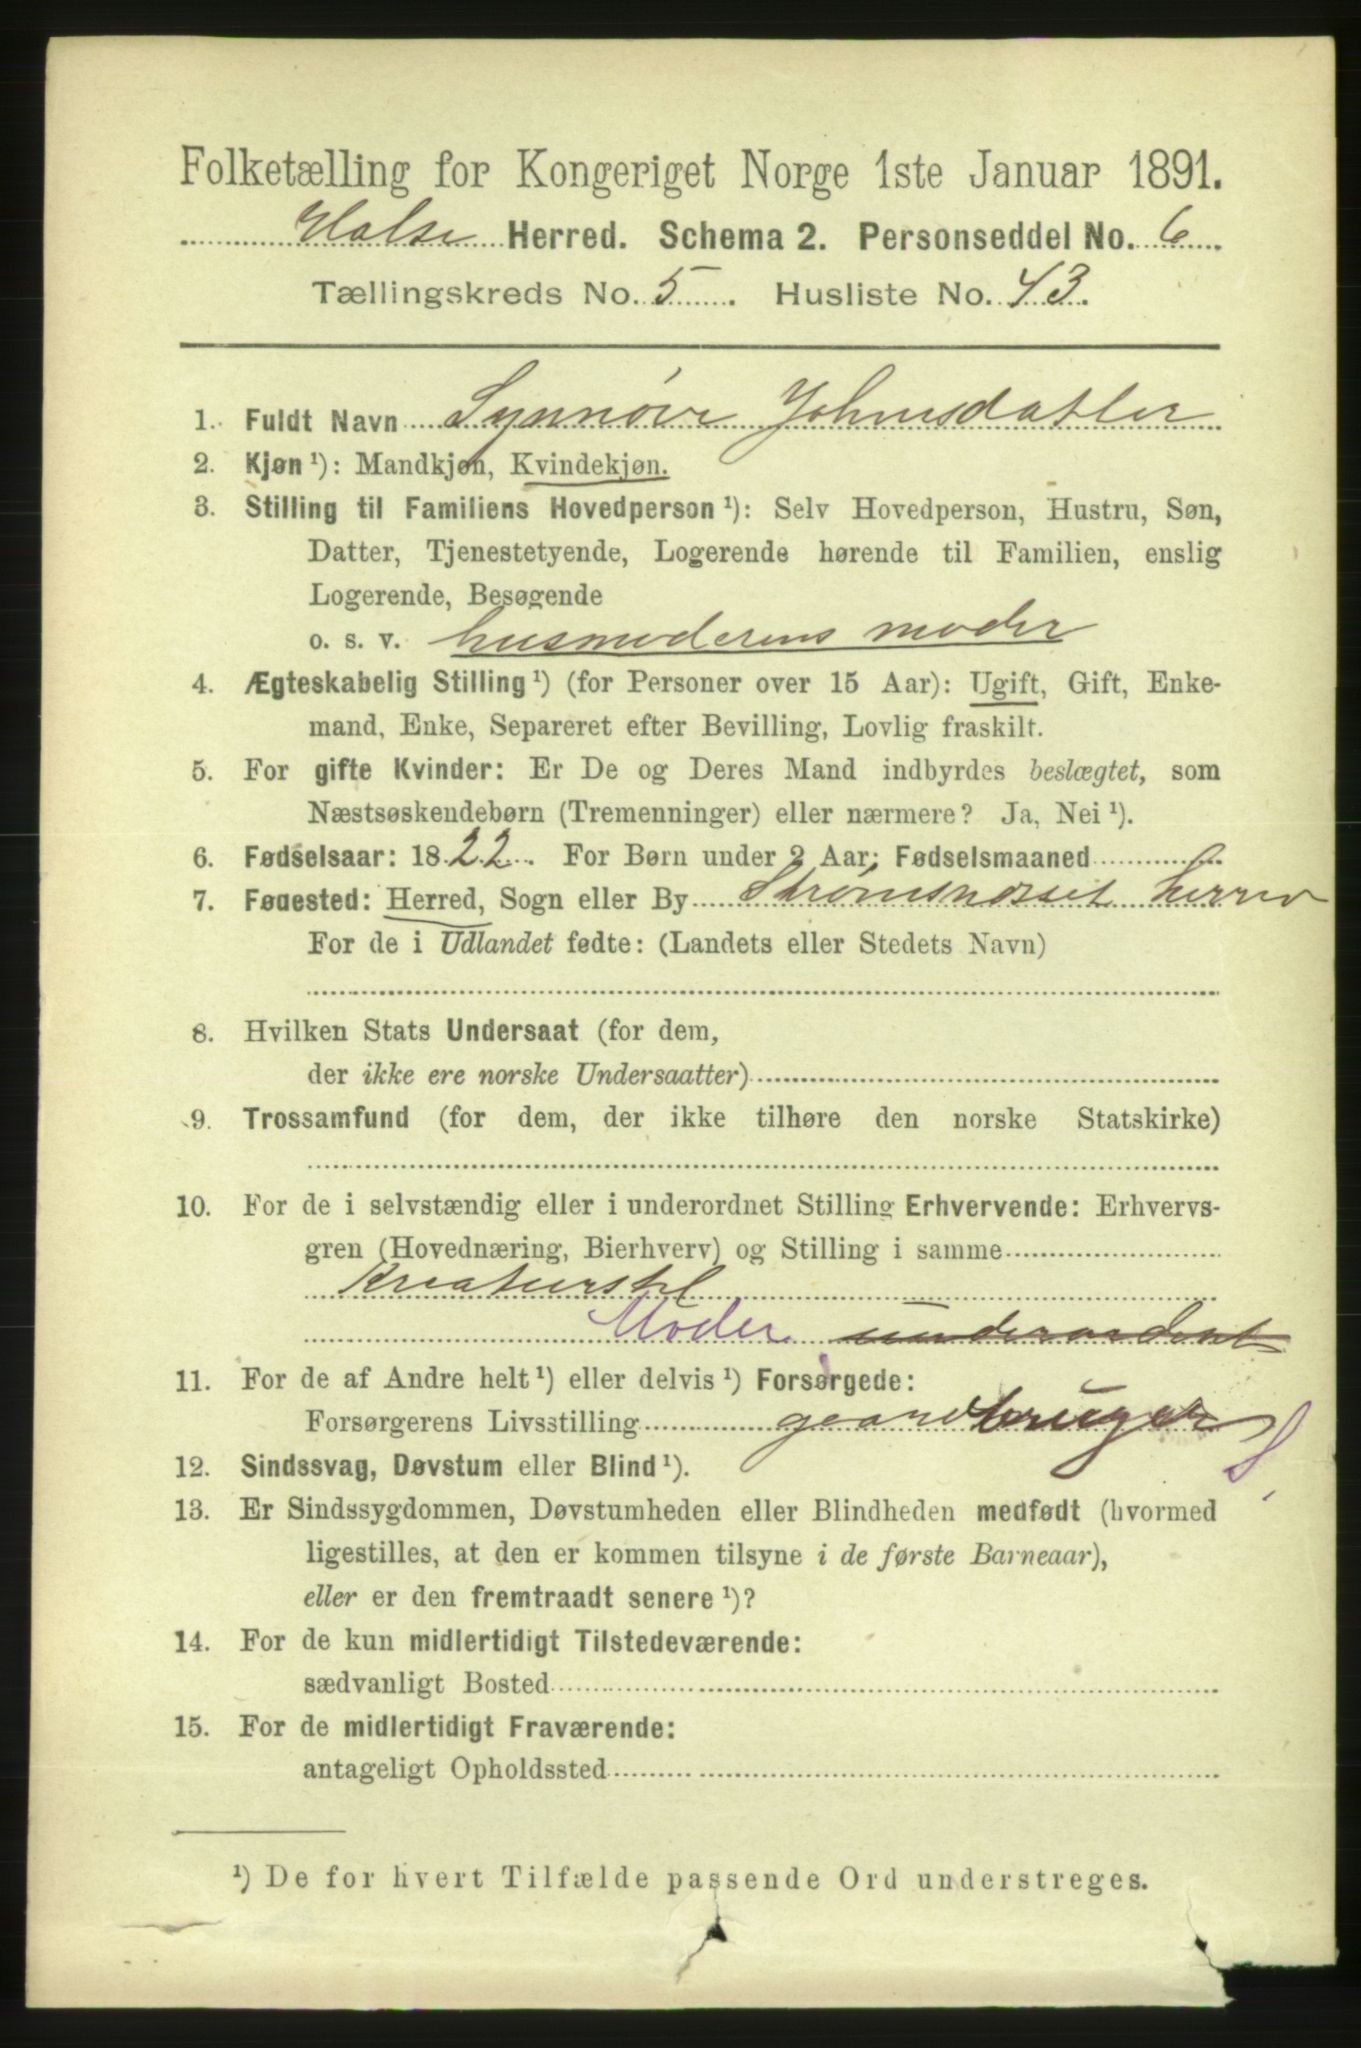 Folketælling for Kongeriget Norge 1ste Januar 1891.
Halse Herred. Schema 2. Personseddel No. 6
Tællingskreds No. 5. Husliste No. 43.
1. Fuldt Navn Synnøve Johnsdatter
2. Kjøn ¹): Mandkjøn, Kvindekjøn.
3. Stilling til Familiens Hovedperson ¹): Selv Hovedperson, Hustru, Søn,
Datter, Tjenestetyende, Logerende hørende til Familien, enslig
Logerende, Besøgende
o. s. v. husmoderens moder
4. Ægteskabelig Stilling ¹) (for Personer over 15 Aar): Ugift, Gift, Enke-
mand, Enke, Separeret efter Bevilling, Lovlig fraskilt.
5. For gifte Kvinder: Er De og Deres Mand indbyrdes beslægtet, som
Næstsøskendebørn (Tremenninger) eller nærmere? Ja, Nei ¹).
6. Fødselsaar: 1822. For Børn under 2 Aar: Fødselsmaaned
7. Fødested: Herred, Sogn eller By Strømsnæsset herred
For de i Udlandet fødte: (Landets eller Stedets Navn)
8. Hvilken Stats Undersaat (for dem,
der ikke ere norske Undersaatter)
9. Trossamfund (for dem, der ikke tilhøre den norske Statskirke)
10. For de i selvstændig eller i underordnet Stilling Erhvervende: Erhvervs-
gren (Hovednæring, Bierhverv) og Stilling i samme
Kreaturstel
Moder underordent
11. For de af Andre helt ¹) eller delvis ¹) Forsørgede:
Forsørgerens Livsstilling gaardbruger S.
12. Sindssvag, Døvstum eller Blind ¹).
13. Er Sindssygdommen, Døvstumheden eller Blindheden medfødt (hvormed
ligestilles, at den er kommen tilsyne i de første Barneaar),
eller er den fremtraadt senere ¹)?
14. For de kun midlertidigt Tilstedeværende:
sædvanligt Bosted
15. For de midlertidigt Fraværende:
antageligt Opholdssted
¹) De for hvert Tilfælde passende Ord understreges.